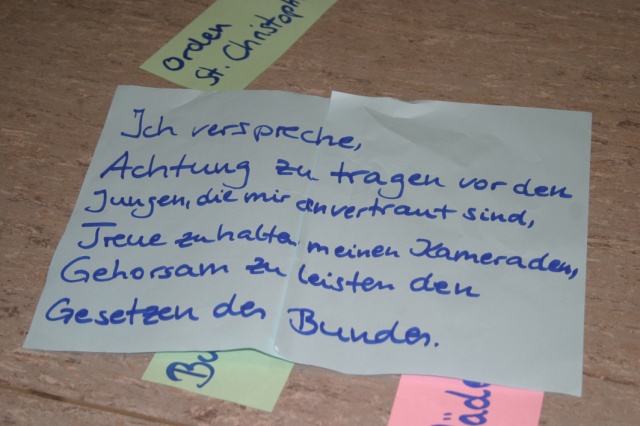 orden
St. Christoph
Ich verspreche,
Achtung zu tragen vor den
Jungen, die mir anvertraut sind,
Treue zu halten meinen Kameraden,
Gehorsam zu leisten den
Gesetzen des Bundes.
Bu
äde